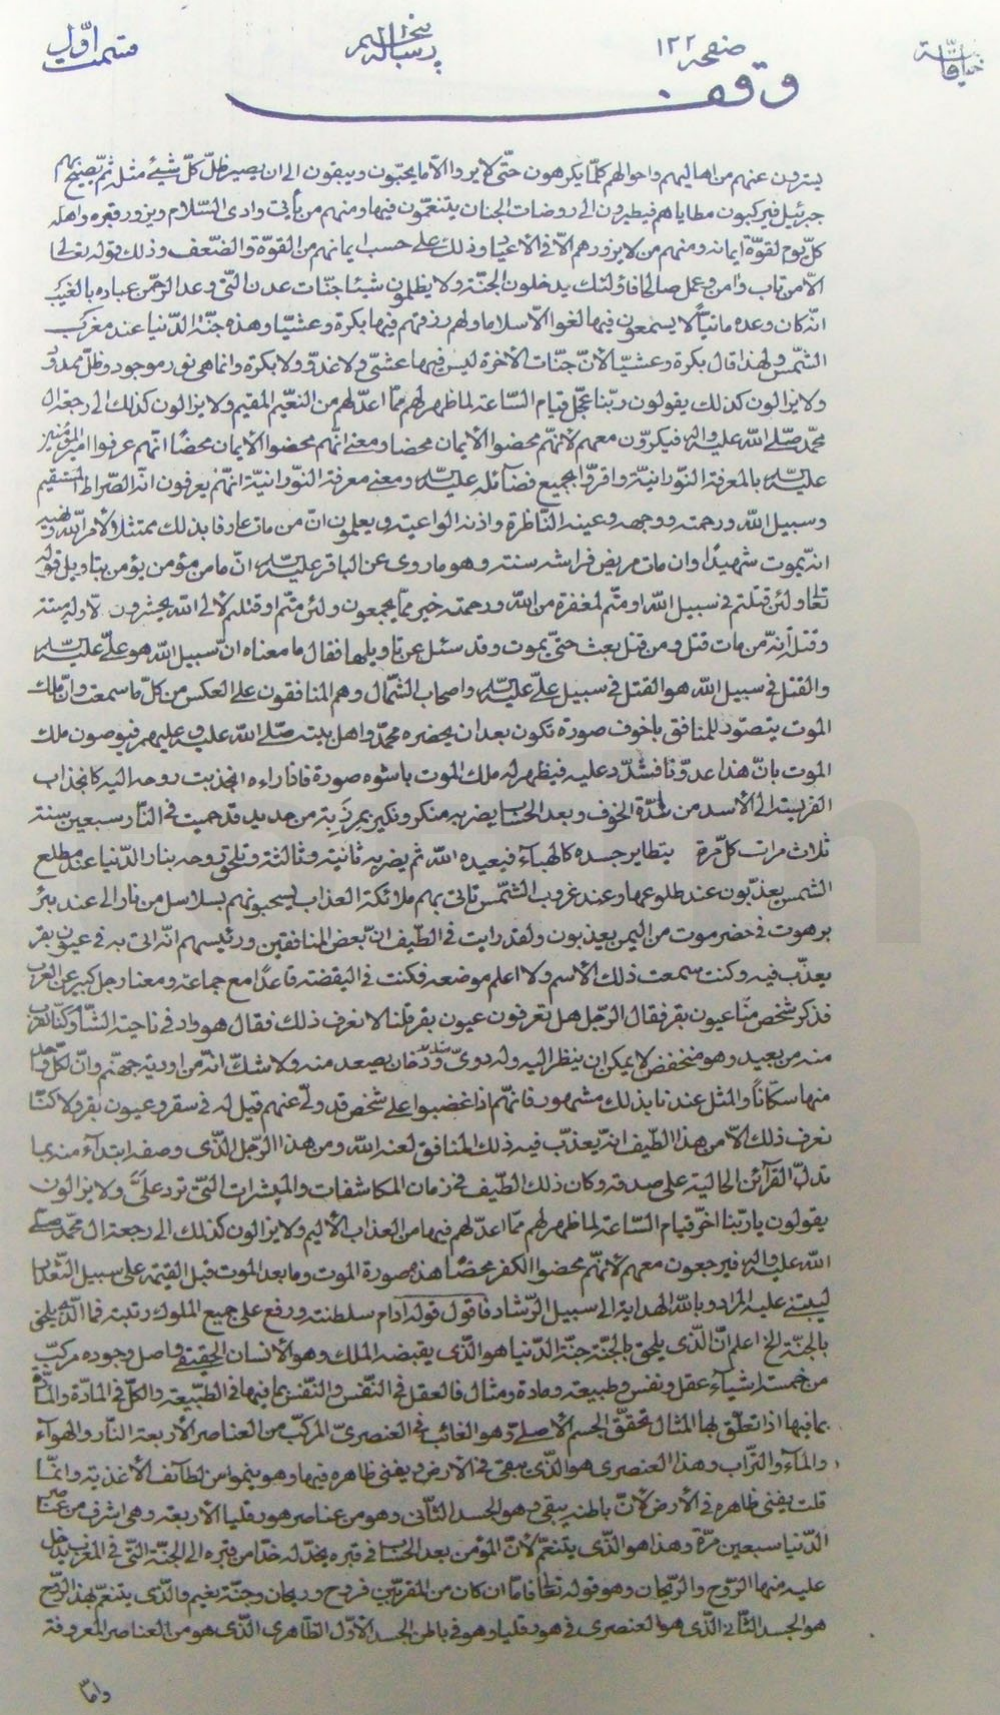 قسمت اوّل
رسالهٔ
صفحه ١٢٢
وقف
يسترون عنهم من اهاليهم واحوالهم كلّما يكرهون حتّى لا يروا الّا ما يحبّون ويبقون الى ان يصير ظلّ كلّ شيئ مثله ثمّ يصيح بهم
جبرئيل فيركبون مطاياهم فيطيرون الى روضات الجنان يتنعّمون فيها ومنهم من يأتي وادى السّلام ويزور قبره واهله
كلّ يوم لقوّة ايمانه ومنهم من لا يزورهم الّا في الاعياد وذلك على حسب ايمانهم من القوّة والضّعف وذلك قوله تعالى
الّا من تاب وآمن وعمل صالحا فاولئك يدخلون الجنّة ولا يظلمون شيئا جنّات عدن الّتى وعد الرّحمن عباده بالغيب
انّه كان وعده مأتيّا لا يسمعون فيها لغوا الّا سلاما ولهم رزقهم فيها بكرة وعشيّا وهذه جنّة الدّنيا عند مغرب
الشّمس ولهذا قال بكرة وعشيّا لانّ جنّات الآخرة ليس فيها عشىّ ولا غدوّ ولا بكرة وانما هى نور موجود وظلّ ممدود
ولا يزالون كذلك يقولون ربّنا عجّل قيام السّاعة لما ظهر لهم ممّا اعدّ لهم من النّعيم المقيم ولا يزالون كذلك الى رجعة ال
محمّد صلّى اللّه عليه واله فيكرّون معهم لانّهم محضوا الايمان محضا ومعنى انّهم محضوا الايمان محضًا انّهم عرفوا امير المؤمنين
عليه السّلام بالمعرفة النّورانيّة واقرّوا بجميع فضآئله عليه السّلام ومعنى معرفة النّورانيّة انّهم يعرفون انّه الصّراط المستقيم
وسبيل اللّه ورحمته ووجهه وعينه النّاظرة واذنه الواعية ويعلمون انّ من مات عارفا بذلك ممتثلا لامر اللّه ونهيه
انّه يموت شهيدًا وان مات مريض فراشه سنته وهو ما روى عن الباقر عليه السّلام انّ ما من مؤمن يؤمن بتاويل قوله
تعالى ولئن قتلتم في سبيل اللّه او متّم لمغفرة من اللّه ورحمته خير ممّا يجمعون ولئن متّم او قتلتم لالى اللّه يحشرون الّا وله ميتة
وقتلة انّه من مات قتل ومن قتل بعث حتّى يموت وقد سئل عن تاويلها فقال ما معناه انّ سبيل اللّه هو علىّ عليه السّلام
والقتل في سبيل اللّه هو القتل في سبيل علىّ عليه السّلام واصحاب الشّمال وهم المنافقون على العكس من كلّ ما سمعت وانّ ملك
الموت يتصوّر للمنافق باخوف صورة تكون بعد ان يحضره محمّد واهل بيته صلّى اللّه عليه وعليهم فيوصون ملك
الموت بانّ هذا عدوّنا فشدّد عليه فيظهر له ملك الموت باشوه صورة فاذا راءه انجذبت روحه اليه كانجذاب
الفريسة الى الاسد من شدّة الخوف وبعد الحساب يضربه منكر ونكير بمرزبّة من حديد قد حميت في النّار سبعين سنة
ثلاث مرات كلّ مرة يتطاير جسده كالهبآء فيعيده اللّه ثم يضربه ثانية وثالثة وتلحق روحه بنار الدّنيا عند مطلع
الشمس يعذّبون عند طلوعها وعند غروب الشّمس تأتى بهم ملائكة العذاب يسحبونهم بسلاسل من نار الى عند بئر
برهوت في حضرموت من اليمن يعذبون ولقد رايت في الطّيف انّ بعض المنافقين ورئيسهم انّه اتى به في عيون بقر
يعذّب فيه وكنت سمعت ذلك الاسم ولا اعلم موضعه فكنت في اليقضة قاعدًا مع جماعة ومعنا رجل كبير من العرب
فذكر شخص منّا عيون بقر فقال الرّجل هل تعرفون عيون بقر قلنا لا نعرف ذلك فقال هو واد في ناحية الشّام وكنّا نقرب
منه من بعيد وهو منخفض لا يمكن ان ينظر اليه وله دوىّ شديد ودخان يصعد منه ولا شكّ انّه من اودية جهنّم وانّ لكلّ واحد
منها سكّانًا والمثل عندنا بذلك مشهور فانّهم اذا غضبوا على شخص قد ولّى عنهم قيل له في سقر وعيون بقر ولا كنّا
نعرف ذلك الّا من هذا الطّيف انّه يعذّب فيه ذلك المنافق لعنه اللّه ومن هذا الرّجل الّذى وصفه ابتدآء منه بما
تدلّ القرآئن الحالية على صدقه وكان ذلك الطّيف في زمان المكاشفات والمبشرات الّتى ترد علىّ ولا يزالون
يقولون يا ربّنا اخّر قيام السّاعة لما ظهر لهم ممّا اعدّ لهم فيها من العذاب الاليم ولا يزالون كذلك الى رجعة ال محمّد صلّى
اللّه عليه واله فيرجعون معهم لانّهم محضوا الكفر محضًا هذه صورة الموت وما بعد الموت قبل القيمة على سبيل التّعداد
ليبتنى عليه المراد وباللّه الهداية الى سبيل الرّشاد فاقول قوله ادام سلطنته ورفع على جميع الملوك رتبته فما الّذى يلحق
بالجنّة الخ اعلم انّ الّذى يلحق بالجنّة جنّة الدّنيا هو الّذى يقبضه الملك وهو الانسان الحقيقى واصل وجوده مركّب
من خمسة اشيآء عقل ونفس وطبيعة ومادة ومثال فالعقل في النّفس والنّفس بما فيها في الطّبيعة والكلّ في المادّة والمادّة
بما فيها اذا تعلّق بها المثال تحقّق الجسم الاصلىّ وهو الغائب في العنصرىّ المركّب من العناصر الاربعة النّار والهوآء
والمآء والتّراب وهذا العنصرى هو الّذى يبقى في الارض ويفنى ظاهره فيها وهو ينمو من لطآئف الاغذية وانّما
قلت يفنى ظاهره في الارض لانّ باطنه يبقى وهو الجسد الثّانى وهو من عناصر هورقليا الاربعة وهى اشرف من عناصر
الدّنيا سبعين مرّة وهذا هو الّذى يتنعّم لانّ المؤمن بعد الحساب في قبره يخدّ له خدّا من قبره الى الجنّة الّتى في المغرب يدخل
عليه منها الرّوح والرّيحان وهو قوله تعالى فامّا ان كان من المقرّبين فروح وريحان وجنّة نعيم والّذى يتنعّم بهذا الرّوح
هو الجسد الثّانى الّذى هو العنصرى في هورقليا وهو في باطن الجسد الاوّل الظّاهرى الّذى هو من العناصر المعروفة
وامّا